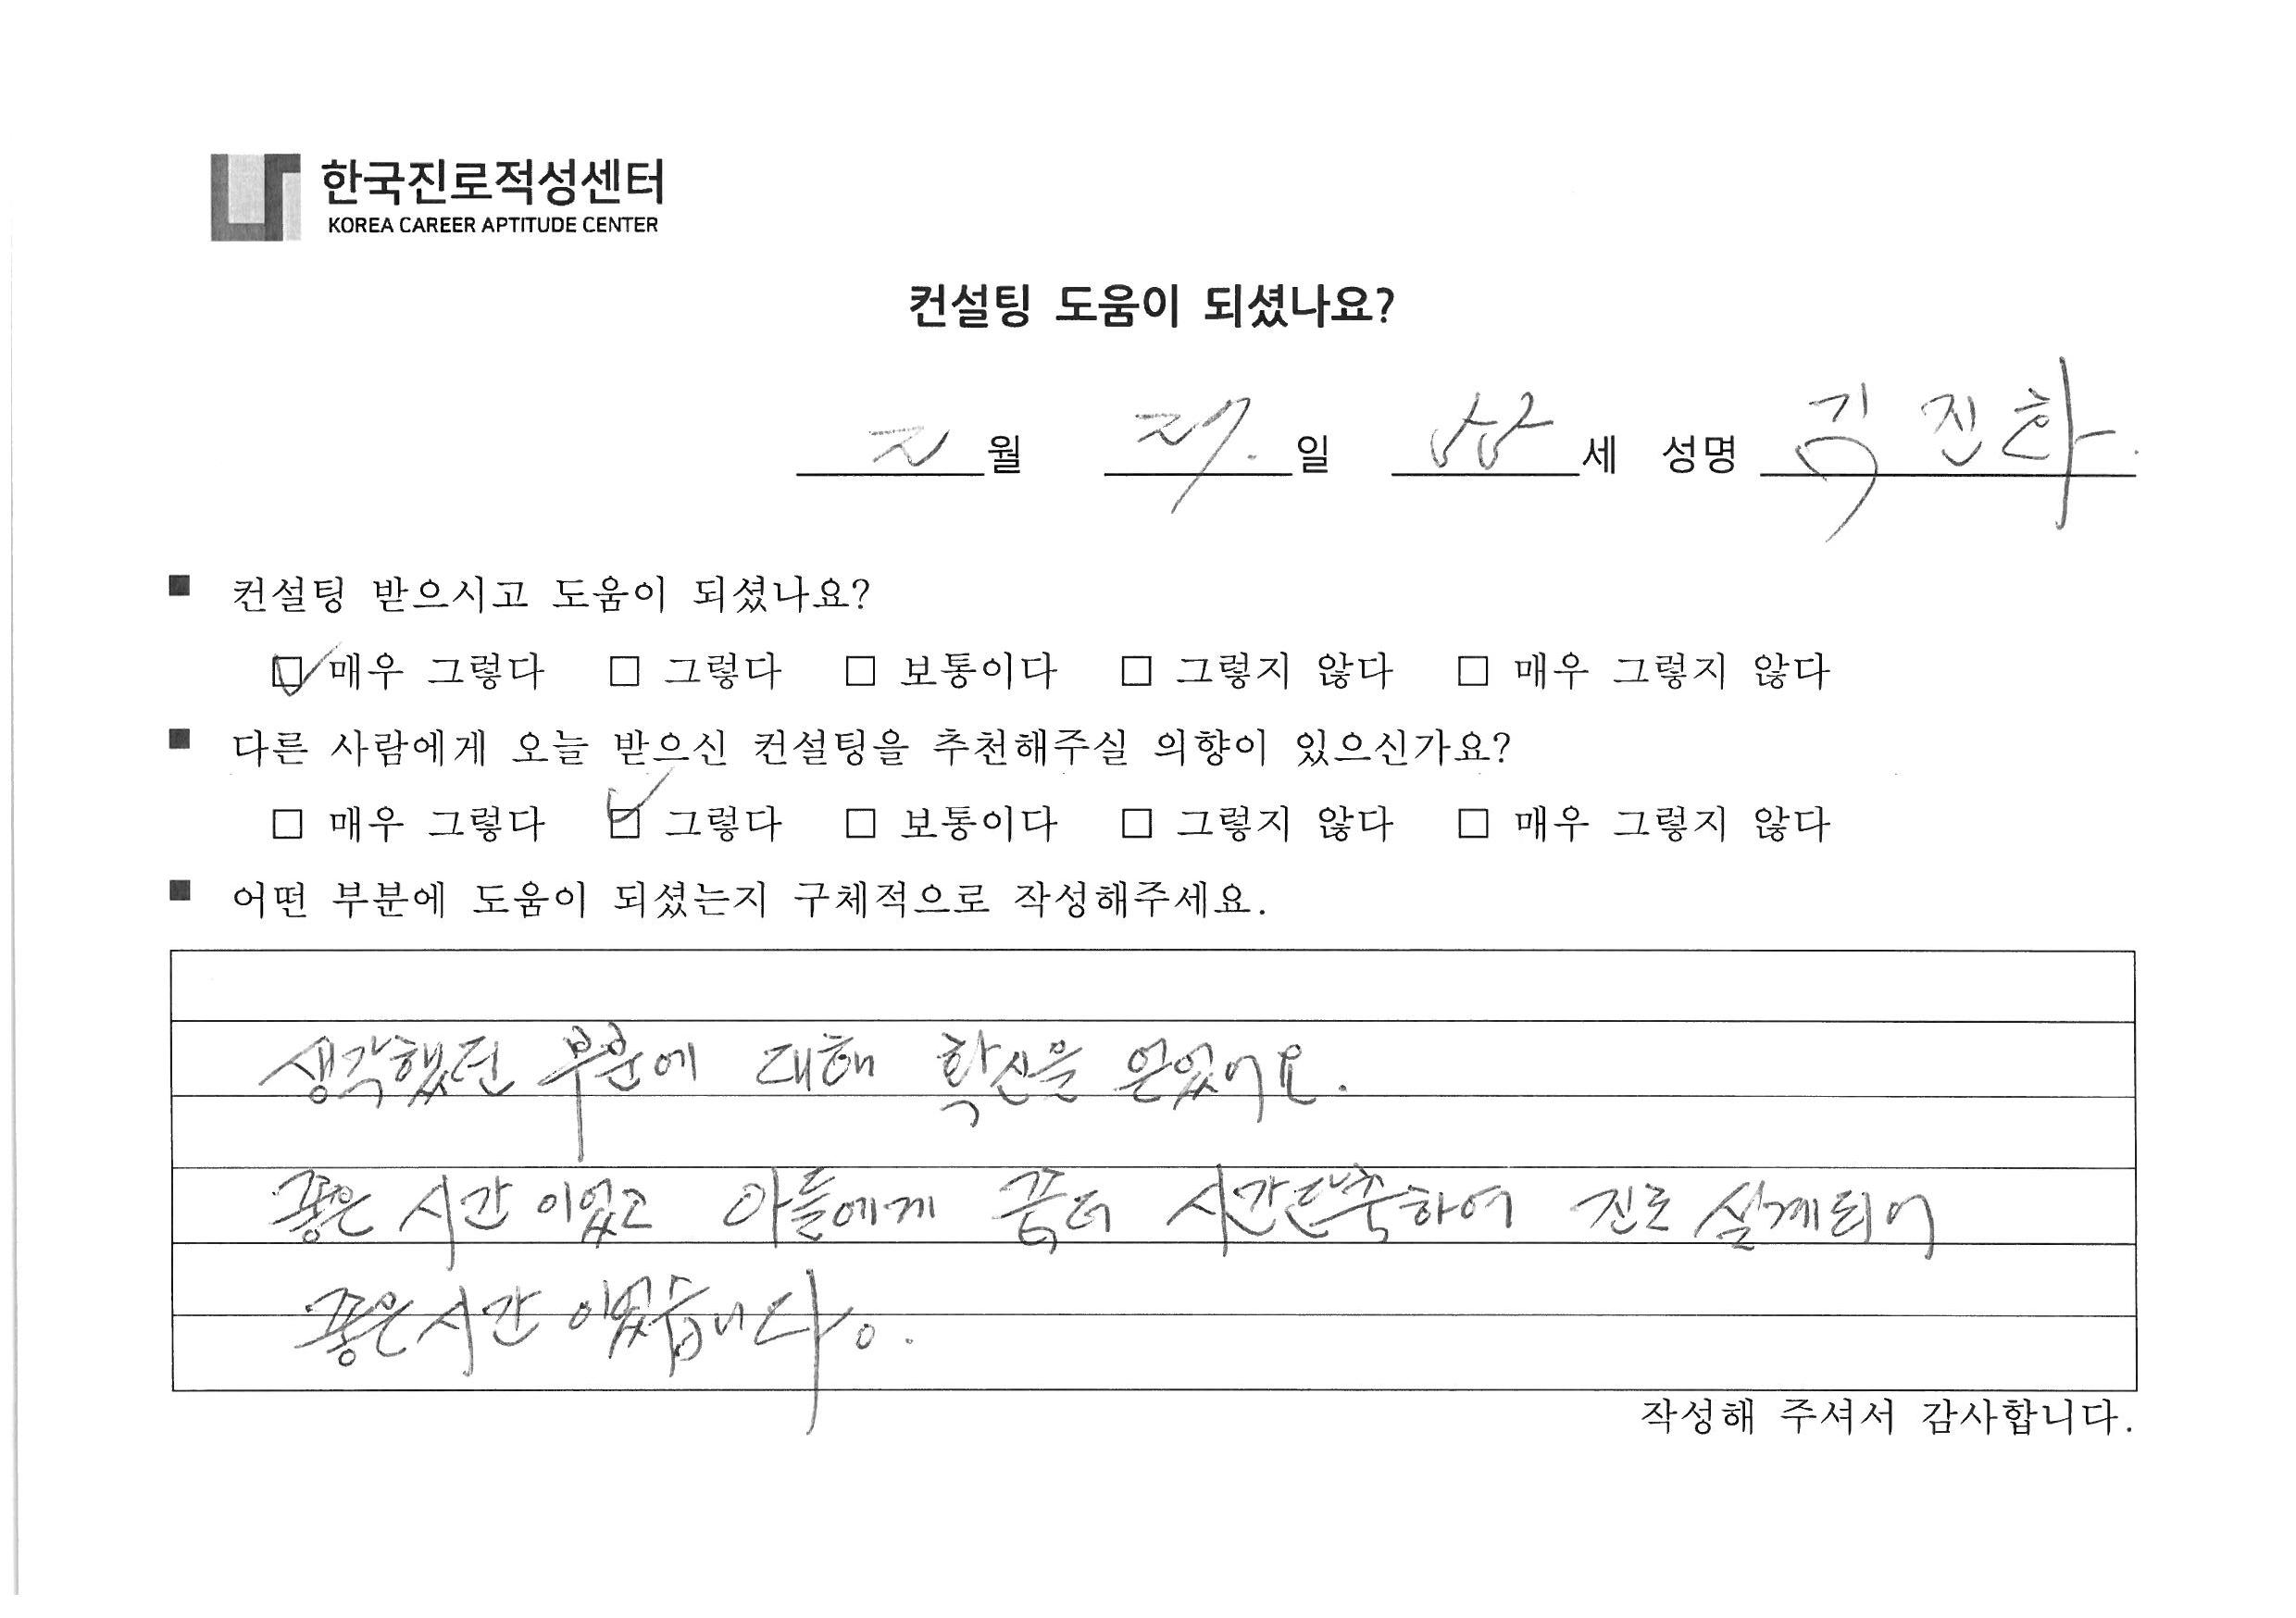 한국진로적성센터
KOREA CAREER APTITUDE CENTER
컨설팅 도움이 되셨나요?
월 일 세 성명 김진화.
■ 컨설팅 받으시고 도움이 되셨나요?
☑ 매우 그렇다 □ 그렇다 □ 보통이다 □ 그렇지 않다 □ 매우 그렇지 않다
■ 다른 사람에게 오늘 받으신 컨설팅을 추천해주실 의향이 있으신가요?
□ 매우 그렇다 ☑ 그렇다 □ 보통이다 □ 그렇지 않다 □ 매우 그렇지 않다
■ 어떤 부분에 도움이 되셨는지 구체적으로 작성해주세요.
생각했던 부분에 대해 확신을 얻었어요.
좋은 시간이었고 아들에게 좀더 시간단축하여 진로 설계되어
좋은시간 이었습니다.
작성해 주셔서 감사합니다.